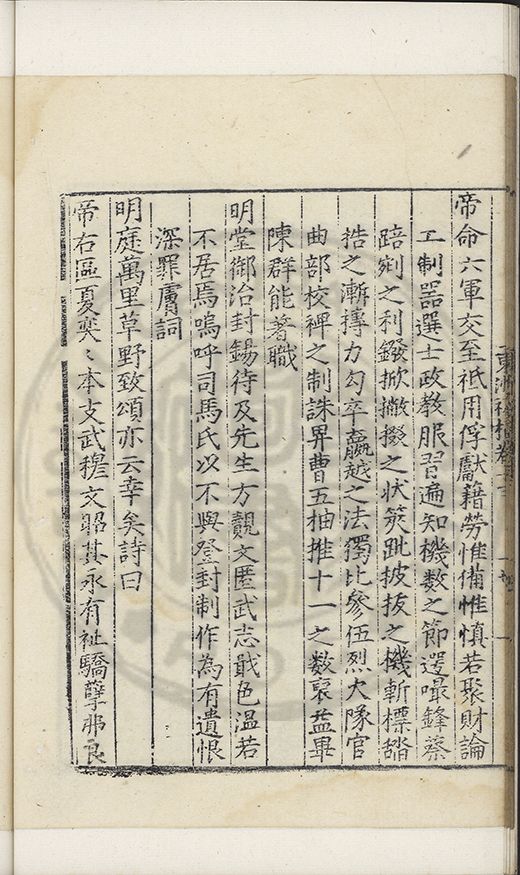 帝命六軍交至祗用俘獻籍勞惟備惟慎若聚財論
工制器選士政教服習遍知機數之節逻㗖鋒蔡
踣剡之利鏺掀撇掇之状筴跐披抜之機斬標㯓
捁之漸摶力勾卒嬴越之法獨比參伍烈火隊官
曲部校裨之制誅畀曹五柚推十一之数裒益畢
陳群能著職
明堂御治封錫待及先生方覿文匿武志戢色温若
不居焉嗚呼司馬氏以不與登封制作為有遺恨
深罪膚詞
明庭萬里草野致頌亦云幸矣詩曰
帝右區夏奕〻本支武穆文昭其永有祉驕孽弗良